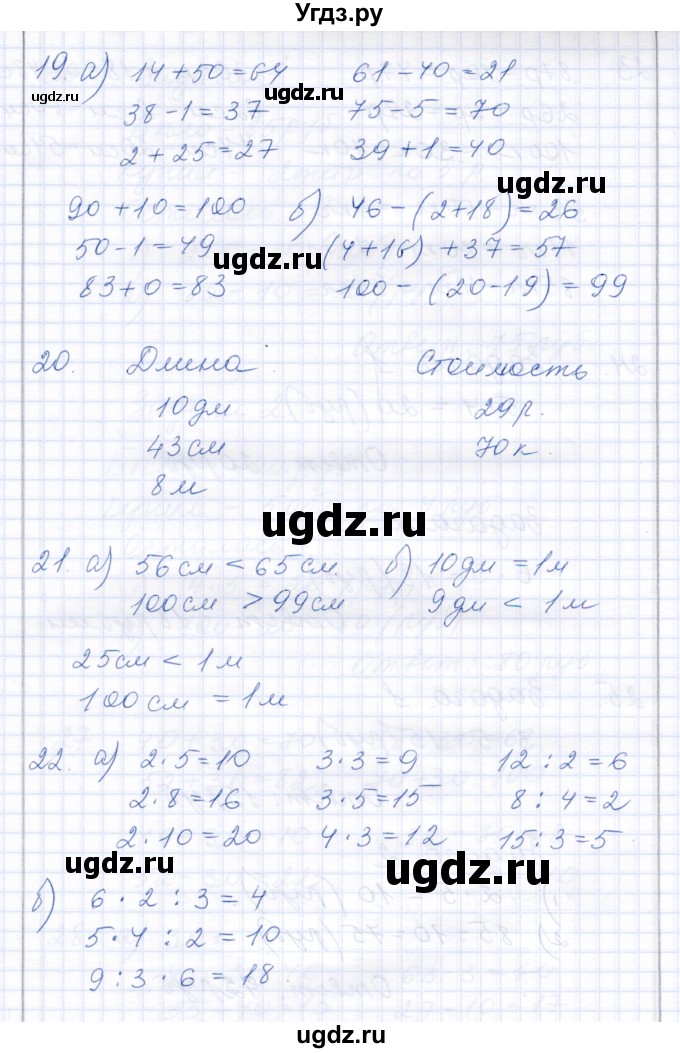 Угдз.ру
19. а) 14+50=64 61-40=21
ugdz.ru ugdz.ru
38-1=37 75-5=70
2+25=27 39+1=40
ugdz.ru
90+10=100 б) 46-(2+18)=26
50-1=49 (4+16)+37=57
ugdz.ru
83+0=83 100-(20-19)=99
20. Длина Стоимость
10дм 29р.
43см 70к.
8м
ugdz.ru
21. а) 56см < 65см б) 10дм = 1м
100см > 99см 9дм < 1м
25см < 1м
100см = 1м
22. а) 2·5=10 3·3=9 12:2=6
2·8=16 3·5=15 8:4=2
2·10=20 4·3=12 15:3=5
ugdz.ru ugdz.ru
б) 6·2:3=4
5·4:2=10
9:3·6=18
ugdz.ru